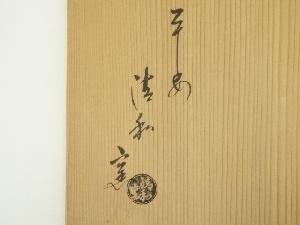 平安
清和
窯